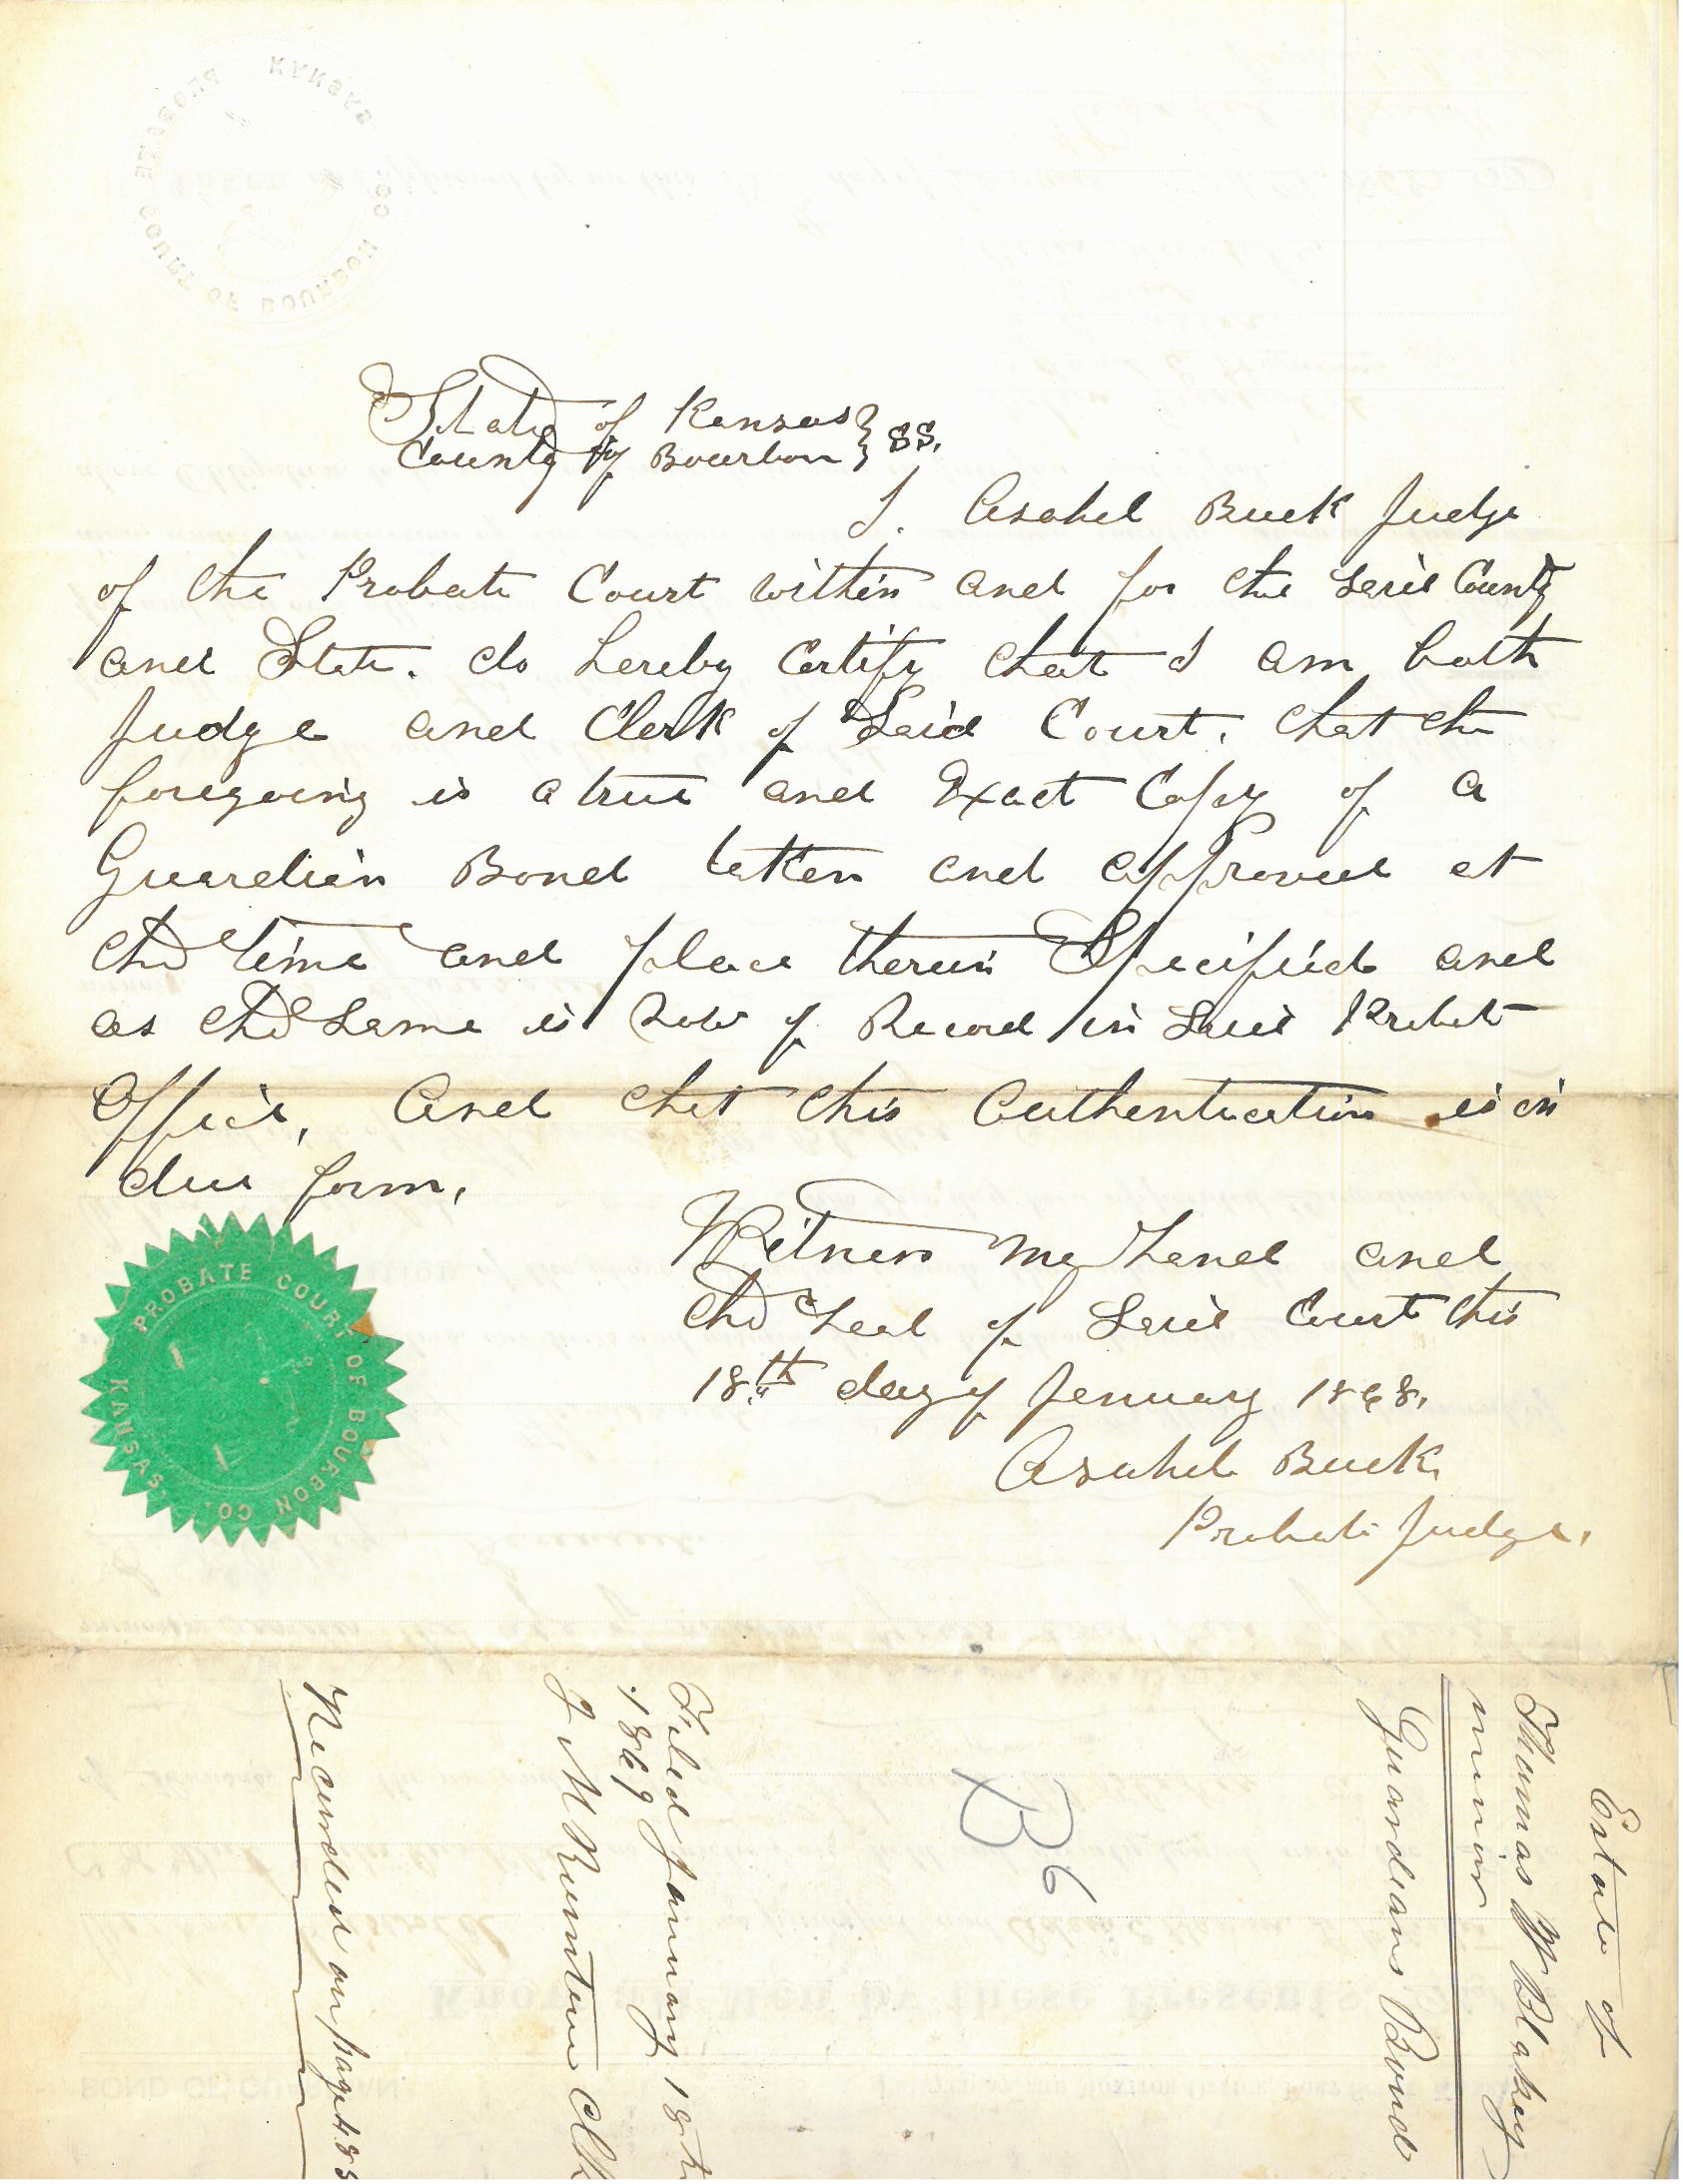 State of Kansas } SS.
County of Bourbon }
I. Asahel Buck Judge
of the Probate Court within and for the said County
and State. do hereby Certify that I am both
Judge and Clerk of Said Court. that the
foregoing is a true and Exact Copy of a
Guardian Bond taken and approved at
the time and place therein Specified and
as the same is now of Record in said Probate
Office, And that this Authentication is in
due form,
Witness my hand and
the seal of said Court this
18th day of January 1868.
Asahel Buck
Probate Judge.
PROBATE COURT OF BOURBON CO. KANSAS.
PROBATE COURT OF BOURBON CO. KANSAS
Estate of
Thomas W Blakey
minor
Guardians Bond
B6
Filed January 18th
1869
J M Clk
Recorded on page 485
BOND OF GUARDIAN.
Know all Men by these Presents